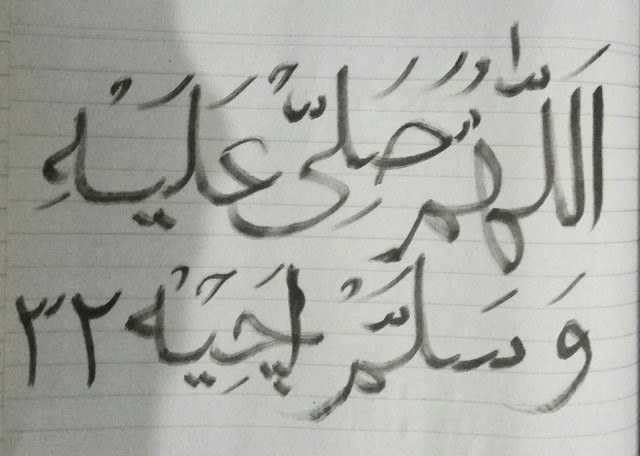 اَللّٰهُمَّ صَلِّى عَلَيْهِ
وَسَلِّمْ ٣٢